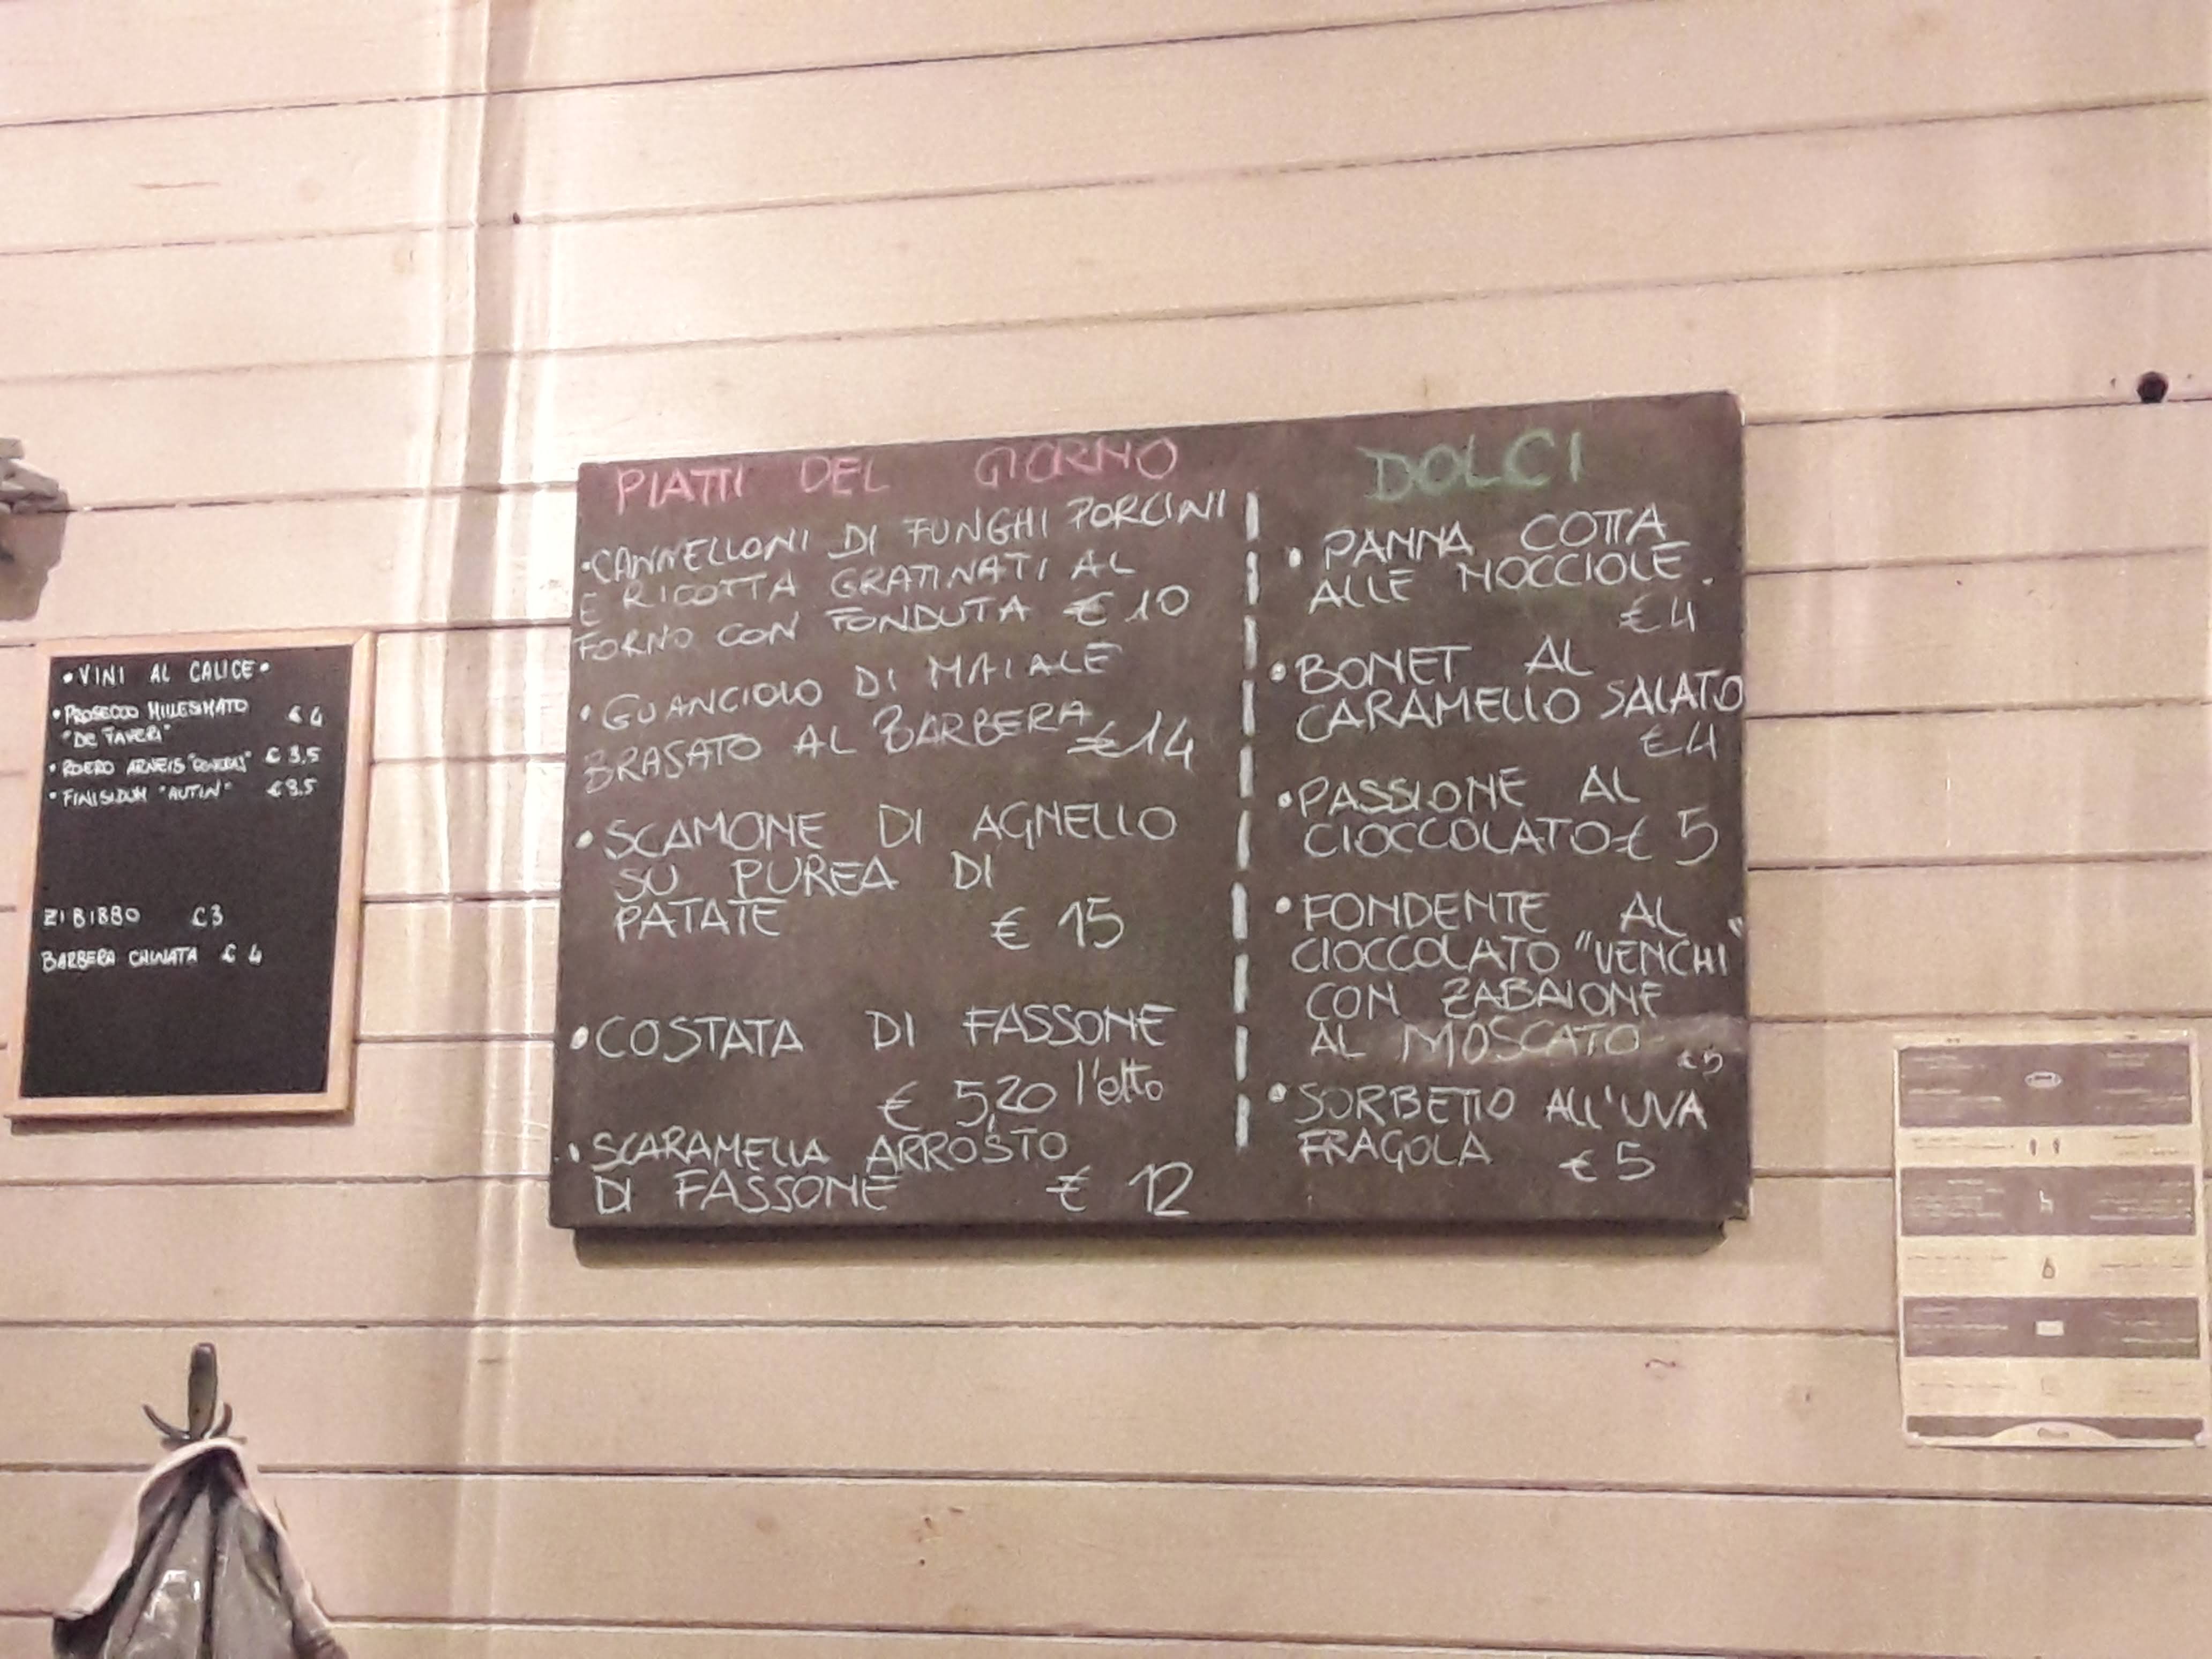 •VINI AL CALICE•
•PROSECCO MILLESIMATO
€ 4
•ROERO ARNEIS € 3,5
•FINISIDUM "AUTIN" € 3.5
ZIBIBBO €3
BARBERA CHINATA € 4
PIATTI DEL GIORNO
•CANNELLONI DI FUNGHI PORCINI
E RICOTTA GRATINATI AL
FORNO CON FONDUTA € 10
•GUANCIOLO DI MAIALE
BRASATO AL BARBERA €14
•SCAMONE DI AGNELLO
SU PUREA DI
PATATE € 15
•COSTATA DI FASSONE
€ 5,20 l'etto
•SCARAMELLA ARROSTO
DI FASSONE € 12
DOLCI
•PANNA COTTA
ALLE NOCCIOLE.
€4
•BONET AL
CARAMELLO SALATO
€4
•PASSIONE AL
CIOCCOLATO € 5
•FONDENTE AL
CIOCCOLATO "VENCHI"
CON ZABAIONE
AL MOSCATO €5
•SORBETTO ALL'UVA
FRAGOLA € 5